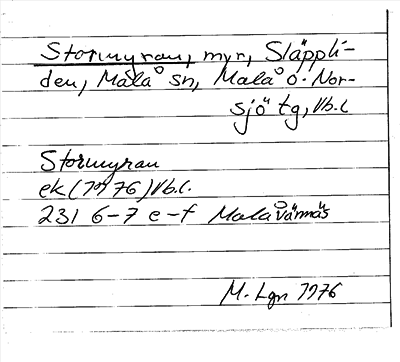 Stormyran, myr, Släppli-
den, Malå sn, Malå o. Nor-
sjö tg, Vb.l
Stormyran
ek (1976) Vb.l.
231 6-7 e-f Malåvännäs
M. Lgn 1976